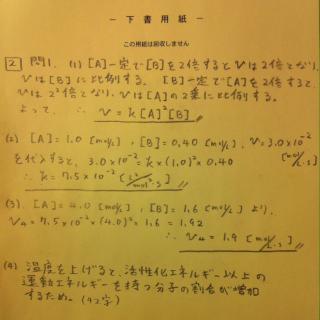 － 下 書 用 紙 －
この用紙は回収しません
2 問1. (1) [A]一定で[B]を2倍するとvは2倍となり、
vは[B]に比例する。[B]一定で[A]を2倍すると、
vは2²倍となり、vは[A]の2乗に比例する。
よって、∴ v = k[A]²[B]
(2) [A]=1.0 [mol/L], [B]=0.40 [mol/L], v=3.0×10⁻² [mol/L·s]
を代入すると、3.0×10⁻²=k×(1.0)²×0.40
∴ k=7.5×10⁻² [L²/mol²·s]
(3). [A]=4.0 [mol/L], [B]=1.6 [mol/L] より、
v₄=7.5×10⁻²×(4.0)²×1.6=1.92
∴ v₄=1.9 [mol/L·s]
(4) 温度を上げると、活性化エネルギー以上の
運動エネルギーを持つ分子の割合が増加
するため。(42字)